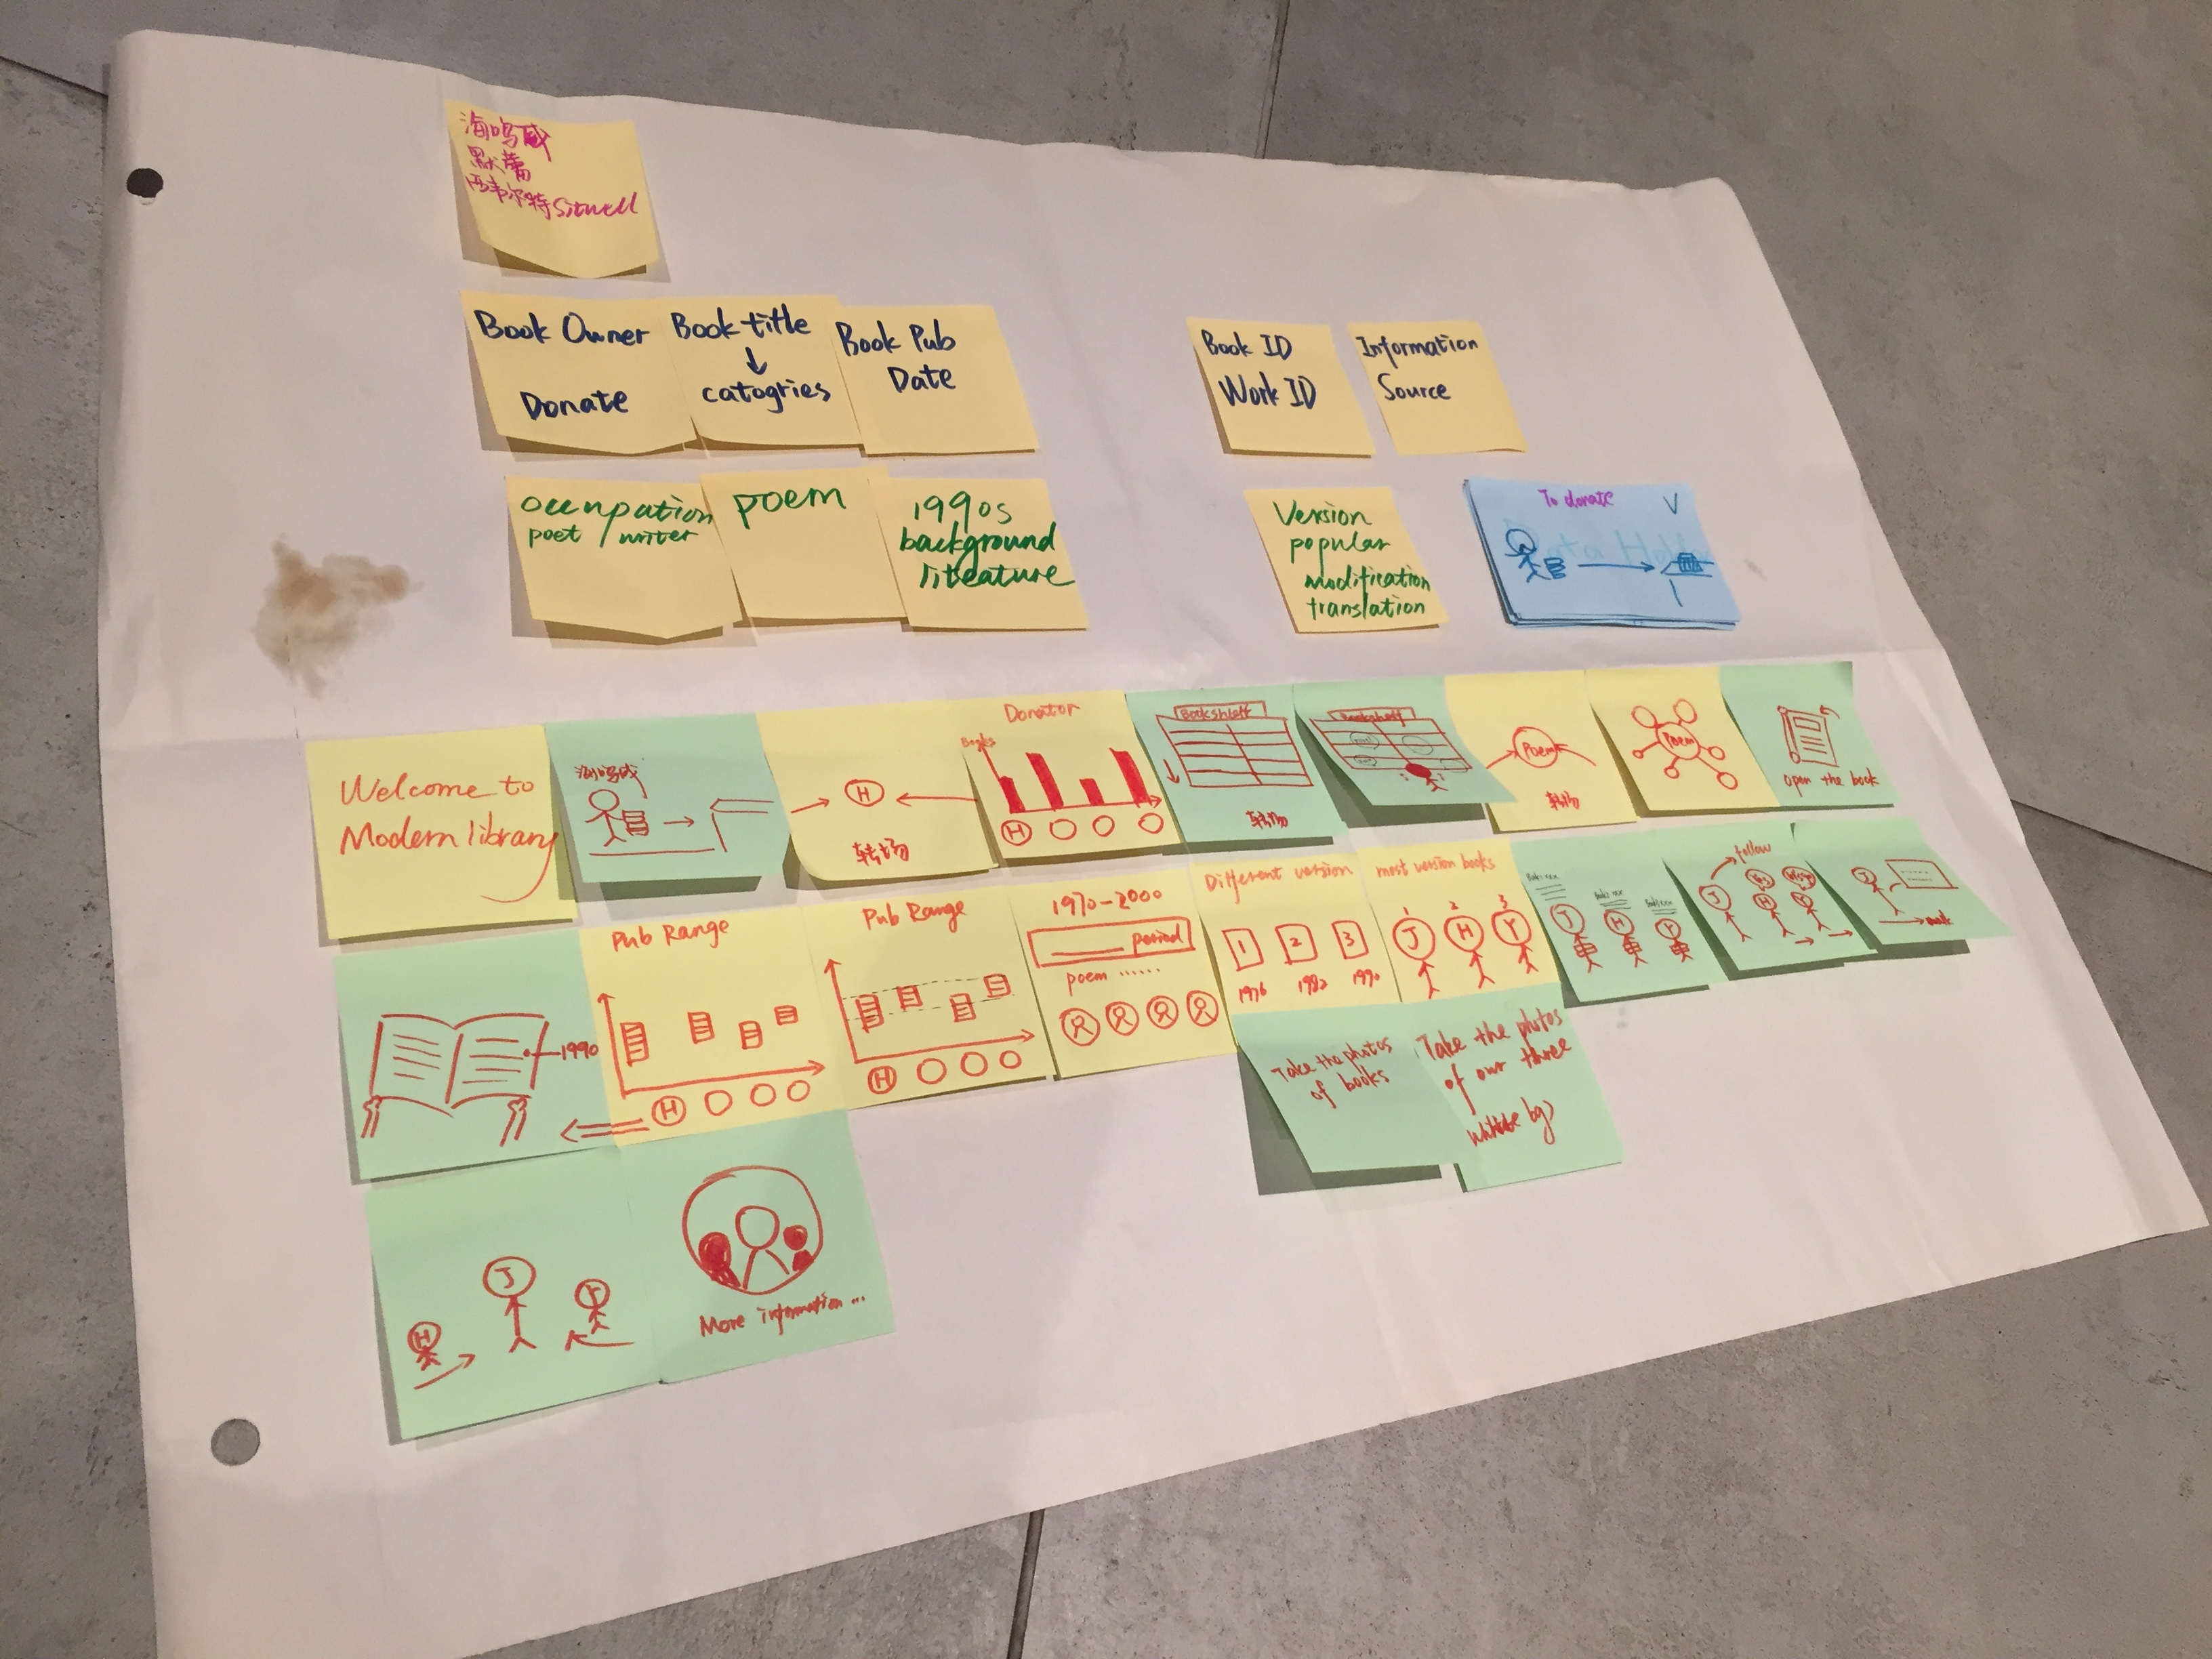 海鸣威
默蕾
西韦尔特Sitwell
Book Owner
Donate
Book title
↓
catogries
Book Pub
Date
Book ID
Work ID
Information
Source
occupation
poet / writer
poem
1990s
background
liteature
Version
popular
modification
translation
To donate
V
Welcome to
Modern library
海鸣威
H
转场
Donator
Books
H
Bookshleff
转场
Bookshelf
Poem
转场
Poem
open the book
1990
Pub Range
H
Pub Range
H
1970-2000
period
poem ......
Different version
1 2 3
1976 1982 1990
most version books
1 2 3
J H Y
J H Y
follow
J H Y
J
walk
Take the photos
of books
Take the photos
of our three
white bg)
H J Y
More information ...